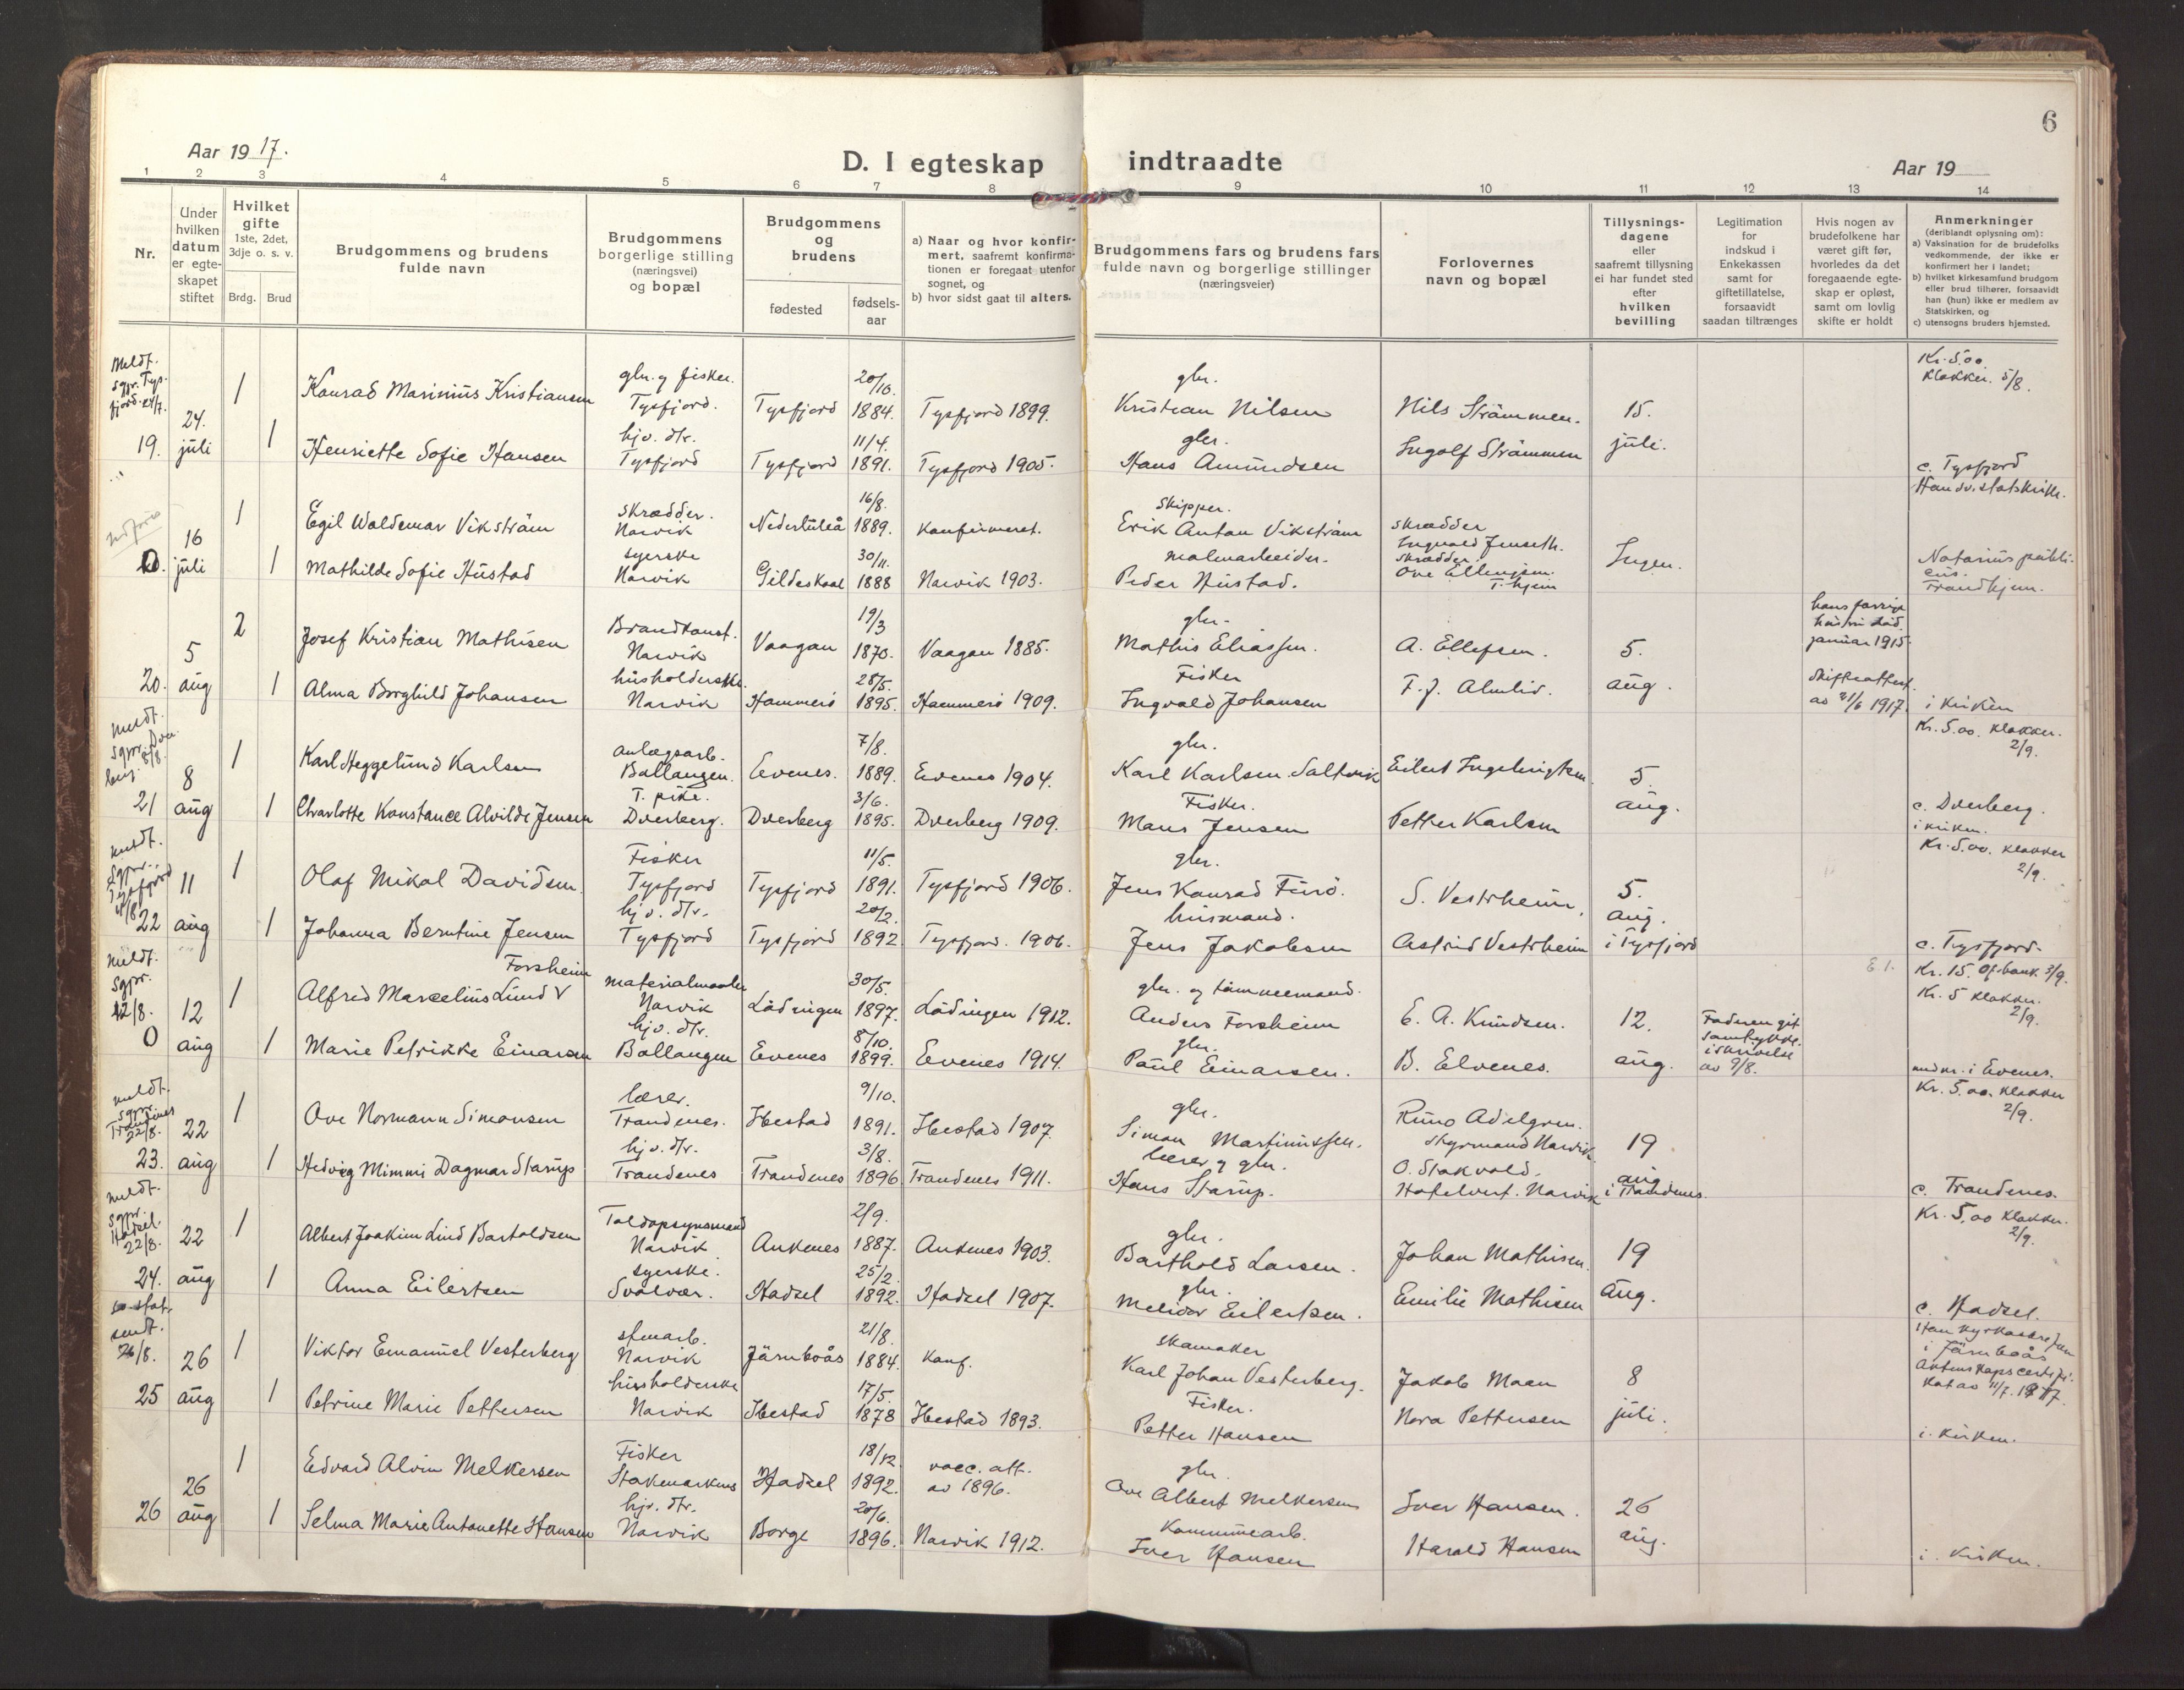 6
Aar 1917.
D. I egteskap indtraadte
Aar 19
1 2 3 4 5 6 7 8 9 10 11 12 13 14
Nr.
Under hvilken datum er egte-skapet stiftet
Hvilket gifte
1ste, 2det, 3dje o. s. v.
Brdg. Brud
Brudgommens og brudens fulde navn
Brudgommens borgerlige stilling (næringsvei) og bopæl
Brudgommens og brudens
fødested
fødsels-aar
a) Naar og hvor konfir-mert, saafremt konfirma-tionen er foregaat utenfor sognet, og
b) hvor sidst gaat til alters.
Brudgommens fars og brudens fars fulde navn og borgerlige stillinger (næringsveier)
Forlovernes navn og bopæl
Tillysnings-dagene eller saafremt tillysning ei har fundet sted efter hvilken bevilling
Legitimation for indskud i Enkekassen samt for giftetillatelse, forsaavidt saadan tiltrænges
Hvis nogen av brudefolkene har været gift før, hvorledes da det foregaaende egte-skap er opløst, samt om lovlig skifte er holdt
Anmerkninger (deriblandt oplysning om):
a) Vaksination for de brudefolks vedkommende, der ikke er konfirmert her i landet;
b) hvilket kirkesamfund brudgom eller brud tilhører, forsaavidt han (hun) ikke er medlem av Statskirken, og
c) utensogns bruders hjemsted.
Meldt. sgpr. Tys-fjord 24/7.
19. 24. juli
1 Konrad Marinius Kristiansen gbr. og fisker. Tysfjord. Tysfjord 20/10 1884. Tysfjord 1899. gbr. Kristian Nilsen Nils Strømmen. 15. juli. Kr. 5.00 klokker. 5/8.
1 Henriette Sofie Hansen hjv. dtr. Tysfjord Tysfjord 11/4. 1891. Tysfjord 1905. gbr. Hans Amundsen Ingolf Strømmen c. Tysfjord
0. 16 juli
1 Egil Waldemar Vikström skrædder. Narvik Nederluleå 16/8. 1889. Konfirmeret. Skipper. Erik Anton Vikström skrædder Ingvald Jenseth. Ingen. Han sv. statskirke.
1 Mathilde Sofie Hustad syerske Narvik Gildeskaal 30/11. 1888 Narvik 1903. malmarbeider. Peder Hustad. skrædder Ove Ellingsen. T.hjem Notarius publi-cus. Trondhjem.
20. 5 aug
2 Josef Kristian Mathisen Brandkonst. Narvik Vaagan 19/3 1870. Vaagan 1885. gbr. Mathis Eliassen. A. Ellefsen. 5. aug. hans forrige hustru død januar 1915.
1 Alma Borghild Johansen husholderske. Narvik Hammerö 28/5. 1895. Hammerö 1909. Fisker Ingvald Johansen F. J. Almlid. Skifteattest. av 21/6 1917. i kirken
meldt. sgpr. Dver-berg. 8/8.
21 8 aug
1 Karl Heggelund Karlsen anlægsarb. Ballangen. Evenes. 7/8. 1889. Evenes 1904. gbr. Karl Karlsen Saltvik Eilert Ingebrigtsen. 5 aug. Kr. 5.00. klokker. 2/9.
1 Charlotte Konstance Alvilde Jensen T. pike. Dverberg. Dverberg 3/6. 1895. Dverberg 1909. Fisker. Mons Jensen Petter Karlsen c. Dverberg. i kirken.
meldt. Sgpr. Tysfjord 4/8.
22 11 aug
1 Olaf Mikal Davidsen. Fisker Tysfjord Tysfjord 11/5. 1891. Tysfjord 1906. gbr. Jens Konrad Furö. S. Vestrheim, 5. aug. i Tysfjord Kr. 5.00. klokker 2/9.
1 Johanna Berntine Jensen hjv. dtr. Tysfjord Tysfjord 20/2. 1892 Tysfjord. 1906. husmand. Jens Jakobsen Astrid Vestrheim c. Tysfjord.
meldt. sgpr. 12/8.
0 12 aug
1 Alfred Marcelius Lund V Forsheim materialmaaler Narvik Lödingen 30/5. 1897. Lödingen 1912. gbr. og tømmermand. Anders Forsheim E. A. Knudsen. 12. aug. Faderen git samtykke. i skrivelse av 9/8. E 1. Kr. 15. Of. bank. 3/9. Kr. 5 klokker. 2/9.
1 Marie Petrikke Einarsen hjv. dtr. Ballangen Evenes 8/10. 1899. Evenes 1914. gbr. Paul Einarsen. B. Elvenes. i Evenes.
meldt. sgpr. Trondenes 22/8.
23. 22 aug
1 Ove Normann Simonsen lærer. Trondenes. Ibestad 9/10. 1891. Ibestad 1907. gbr. Simon Martinussen. Runo Adelgren. Styrmand Narvik. 19 aug. i Trondenes. Kr. 5.00. klokker 2/9.
1 Hedvig Mimmi Dagmar Starup hjv. dtr. Trondenes Trondenes 3/8. 1896 Trondenes 1911. lærer og gbr. Hans Starup. O. Stokvold. Hotelvert. Narvik c. Trondenes.
meldt. sgpr. Hadsel. 22/8.
24. 22 aug
1 Albert Joakim Lind Bartoldsen Toldopsynsmand Narvik Ankenes 2/9. 1887. Ankenes 1903. gbr. Barthold Larsen. Johan Mathisen. 19 aug. Kr. 5,00 klokker. 2/9.
1 Anna Eilertsen syerske. Svolvær. Hadsel 25/2. 1892. Hadsel 1907. gbr. Melidor Eilertsen. Emilie Mathisen c. Hadsel.
sendt. 26/8.
25 26 aug
1 Viktor Emanuel Vesterberg stenarb. Narvik Järnboås 21/8. 1884. Konf. skomaker Karl Johan Vesterberg. Jakob Moen 8 juli. i Järnboås Äktenskapscertifi-kat av 11/7. 1917.
1 Petrine Marie Pettersen husholderske Narvik Ibestad 17/5. 1878 Ibestad 1893. Fisker. Petter Hansen Nora Pettersen i. kirken.
26 26 aug
1 Edvard Alvin Melkersen Fisker Stokmarknes Hadsel 18/12 1892. vacc. att. av 1896. gbr. Ove Albert Melkersen Iver Hansen. 26 aug.
1 Selma Marie Antonette Hansen hjv. dtr. Narvik Borge 20/6. 1896. Narvik 1912. Kommunearb. Iver Hansen Harald Hansen i. kirken.